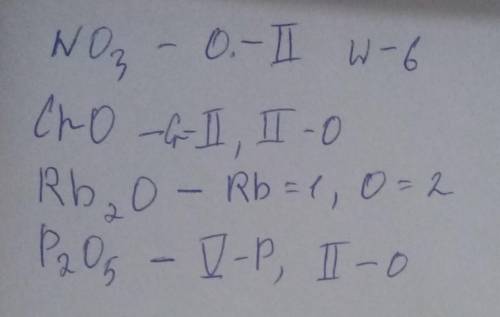 WO₃ - O.-II W-6
CrO - Cr-II, II-O
Rb₂O - Rb=1, O=2
P₂O₅ - V-P, II-O